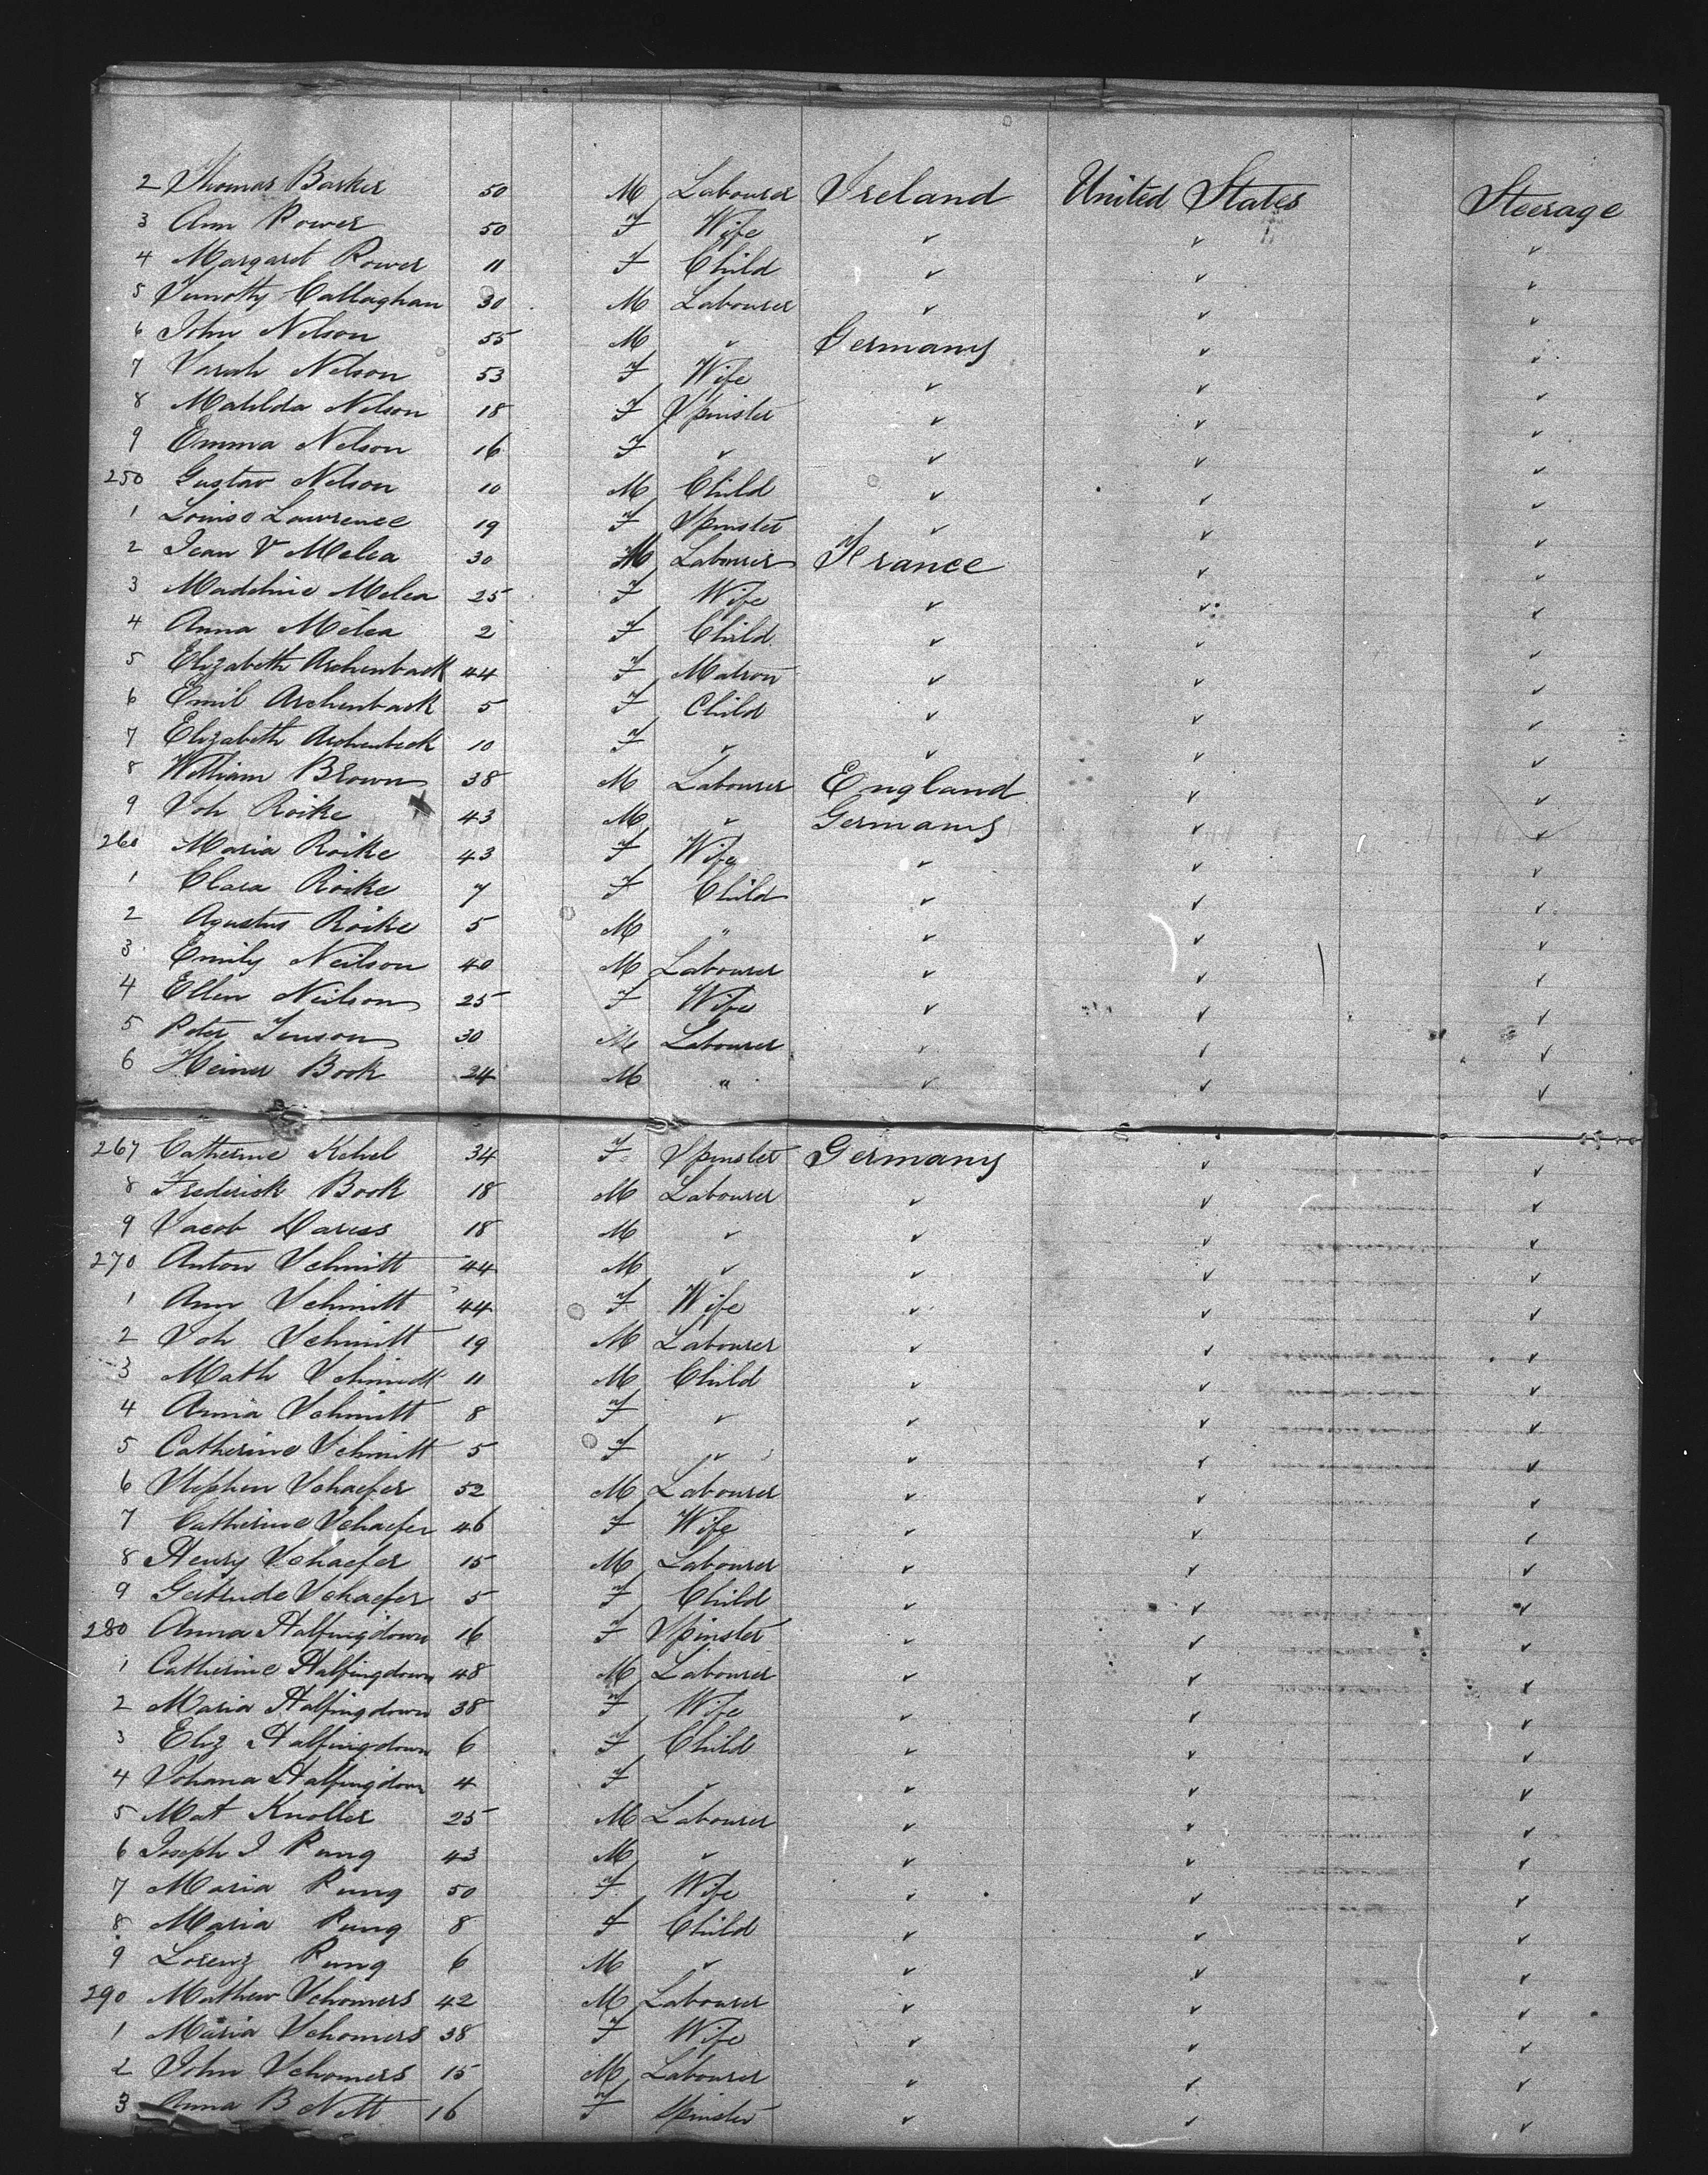 2 Thomas Barker 50 M Labourer Ireland United States Steerage
3 Ann Power 50 F Wife ✓ ✓ ✓
4 Margaret Power 11 F Child ✓ ✓ ✓
5 Timothy Callaghan 30 M Labourer ✓ ✓ ✓
6 John Nelson 55 M ✓ Germany ✓ ✓
7 Sarah Nelson 53 F Wife ✓ ✓ ✓
8 Matilda Nelson 18 F Spinster ✓ ✓ ✓
9 Emma Nelson 16 F ✓ ✓ ✓ ✓
250 Gustav Nelson 10 M Child ✓ ✓ ✓
1 Louise Lawrence 19 F Spinster ✓ ✓ ✓
2 Jean V Melea 30 M Labourer France ✓ ✓
3 Madeline Melea 25 F Wife ✓ ✓ ✓
4 Anna Melea 2 F Child ✓ ✓ ✓
5 Elizabeth Aschenback 44 F Matron ✓ ✓ ✓
6 Emil Aschenback 5 F Child ✓ ✓ ✓
7 Elizabeth Aschenback 10 F ✓ ✓ ✓ ✓
8 William Brown 38 M Labourer England ✓ ✓
9 Joh Roike 43 M ✓ Germany ✓ ✓
260 Maria Roike 43 F Wife ✓ ✓ ✓
1 Clara Roike 7 F Child ✓ ✓ ✓
2 Agustus Roike 5 M " ✓ ✓ ✓
3 Emily Neilson 40 M Labourer ✓ ✓ ✓
4 Ellen Neilson 25 F Wife ✓ ✓ ✓
5 Peter Jenson 30 M Labourer ✓ ✓ ✓
6 Heiner Book 24 M " ✓ ✓ ✓
267 Catherine Kehel 34 F Spinster Germany ✓ ✓
8 Frederick Book 18 M Labourer ✓ ✓ ✓
9 Jacob 18 M ✓ ✓ ✓ ✓
270 Anton Schmitt 44 M ✓ ✓ ✓ ✓
1 Ann Schmitt 44 F Wife ✓ ✓ ✓
2 Joh Schmitt 19 M Labourer ✓ ✓ ✓
3 Math Schmidt 11 M Child ✓ ✓ ✓
4 Anna Schmitt 8 F ✓ ✓ ✓ ✓
5 Catherine Schmitt 5 F ✓ ✓ ✓ ✓
6 Stephen Schaefer 52 M Labourer ✓ ✓ ✓
7 Catherine Schaefer 46 F Wife ✓ ✓ ✓
8 Henry Schaefer 15 M Labourer ✓ ✓ ✓
9 Gertrude Schaefer 5 F Child ✓ ✓ ✓
280 Anna Halfingdown 16 F Spinster ✓ ✓ ✓
1 Catherine Halfingdown 48 M Labourer ✓ ✓ ✓
2 Maria Halfingdown 38 F Wife ✓ ✓ ✓
3 Eliz Halfingdown 6 F Child ✓ ✓ ✓
4 Johana Halfingdown 4 F ✓ ✓ ✓ ✓
5 Mat Knoller 25 M Labourer ✓ ✓ ✓
6 Joseph J Pung 43 M ✓ ✓ ✓ ✓
7 Maria Pung 50 F Wife ✓ ✓ ✓
8 Maria Pung 8 F Child ✓ ✓ ✓
9 Lorenz Pung 6 M ✓ ✓ ✓ ✓
290 Mathew Schomers 42 M Labourer ✓ ✓ ✓
1 Maria Schomers 38 F Wife ✓ ✓ ✓
2 John Schomers 15 M Labourer ✓ ✓ ✓
3 Anna B Nett 16 F Spinster ✓ ✓ ✓